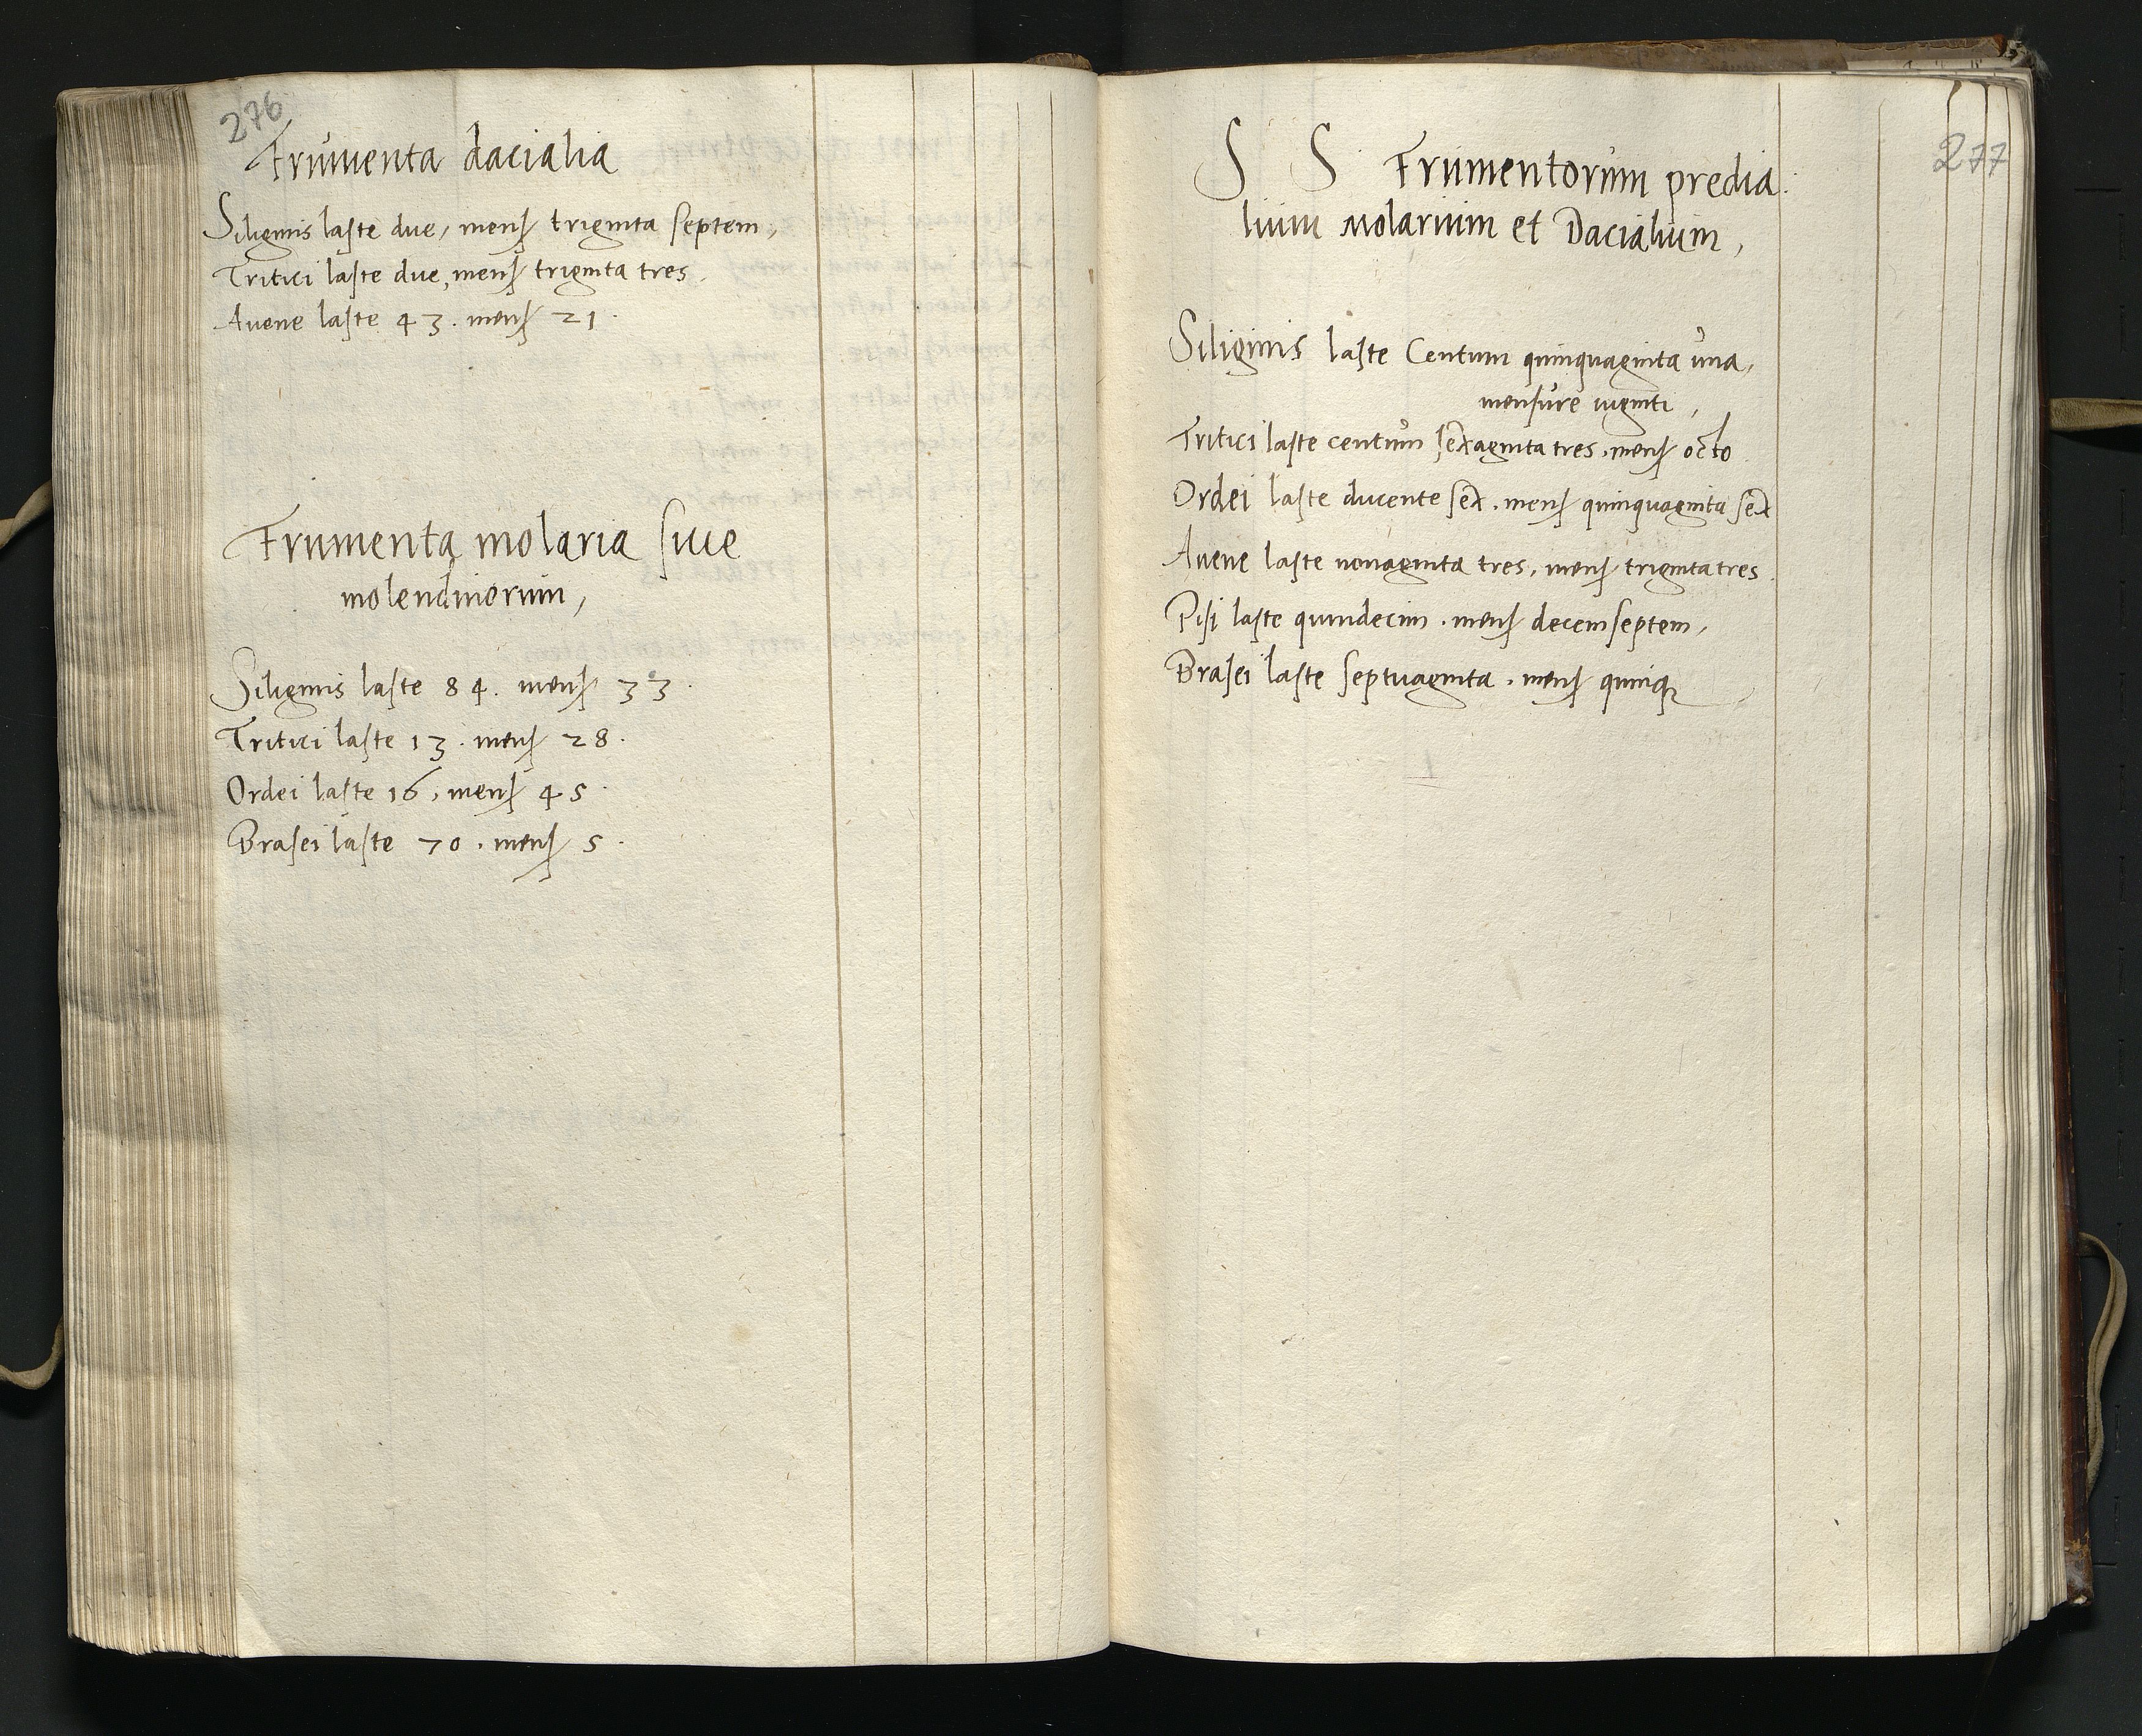 276
Frumenta dacialia
Siliginis laste due, mens triginta septem,
Tritici laste due, mens triginta tres.
Auene laste 43. mens 21.
Frumenta molaria siue
molendinorum,
Siliginis laste 84. mens 33.
Tritici laste 13. mens 28.
Ordei laste 16, mens 45.
Brasei laste 70. mens 5.
277
S S Frumentorum predia:
lium Molarium et Dacialium,
Siliginis laste Centum quinquaginta una,
mensure viginti,
Tritici laste centum sexaginta tres, mens octo
Ordei laste ducente sex. mens quinquaginta sex
Auene laste nonaginta tres, mens triginta tres.
Pisi laste quindecim. mens decemseptem,
Brasei laste septuaginta. mens quinq